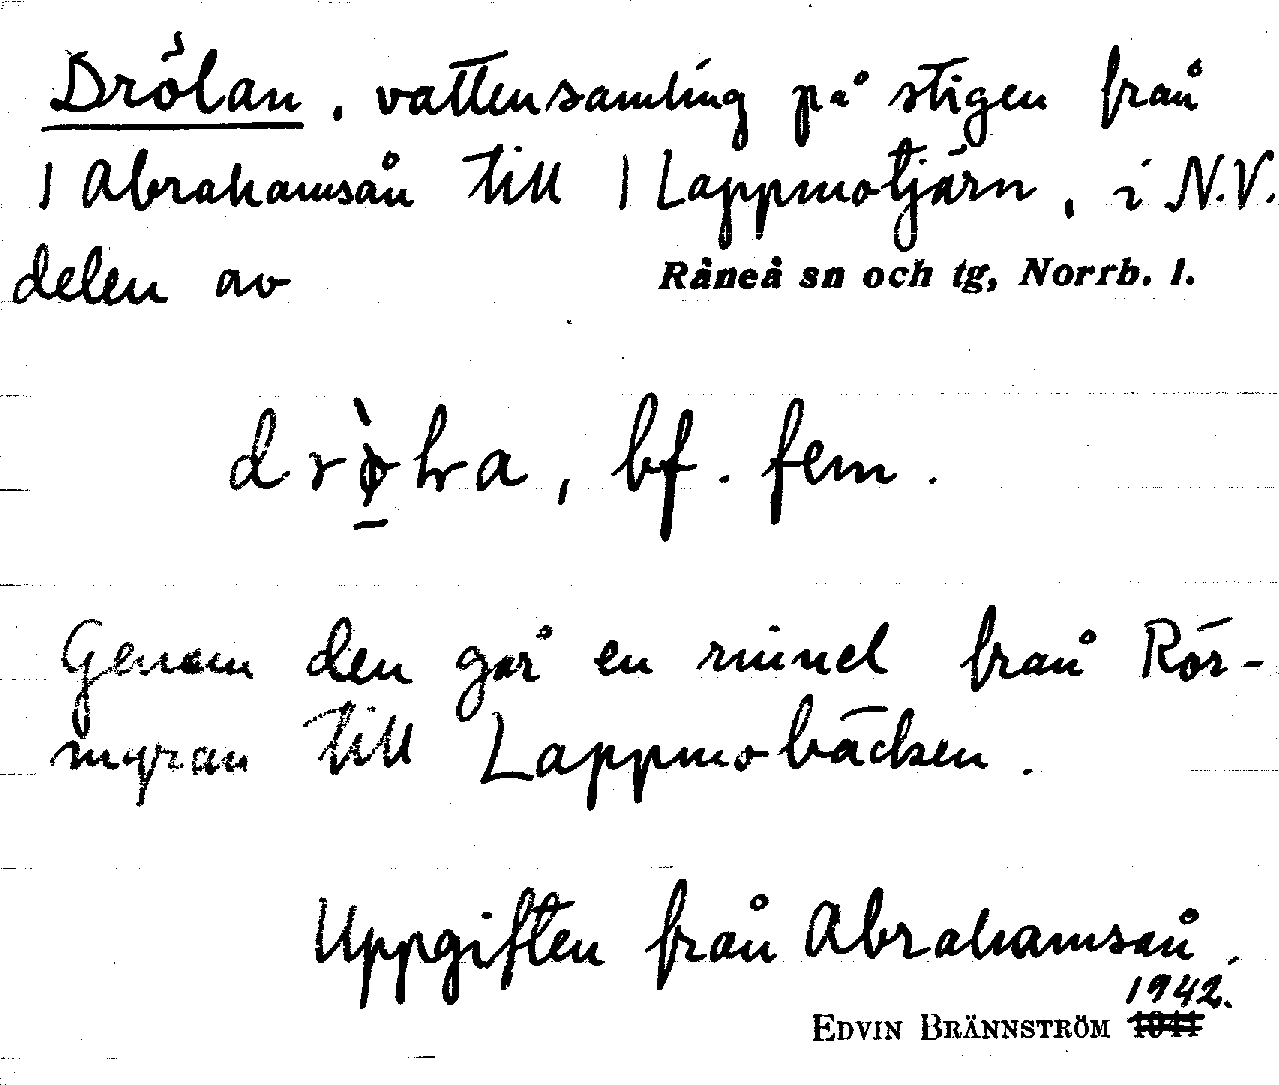 Drölan, vattensamling på stigen från
| Abrahamsån till | Lappmotjärn, i N.V.
delen av Råneå sn och tg, Norrb. l.
bf. fem.
Genom den går en rinnel från Rör-
myran till Lappmobäcken.
Uppgiften från Abrahamsån.
1942.
EDVIN BRÄNNSTRÖM 1941